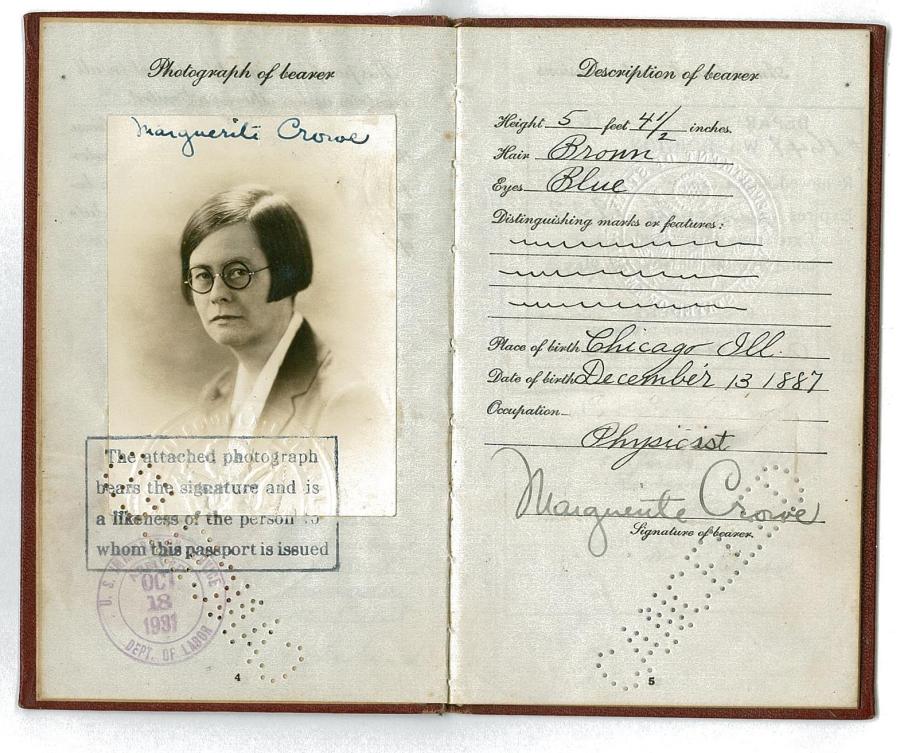 Photograph of bearer
Marguerite Crowe
The attached photograph
bears the signature and is
a likeness of the person to
whom this passport is issued
OCT
18
1931
DEPT. OF LABOR
4
Description of bearer
Height 5 feet 4 1/2 inches.
Hair Brown
Eyes Blue
Distinguishing marks or features:
Place of birth Chicago Ill.
Date of birth December 13 1887
Occupation
Physicist
Marguerite Crowe
Signature of bearer.
5